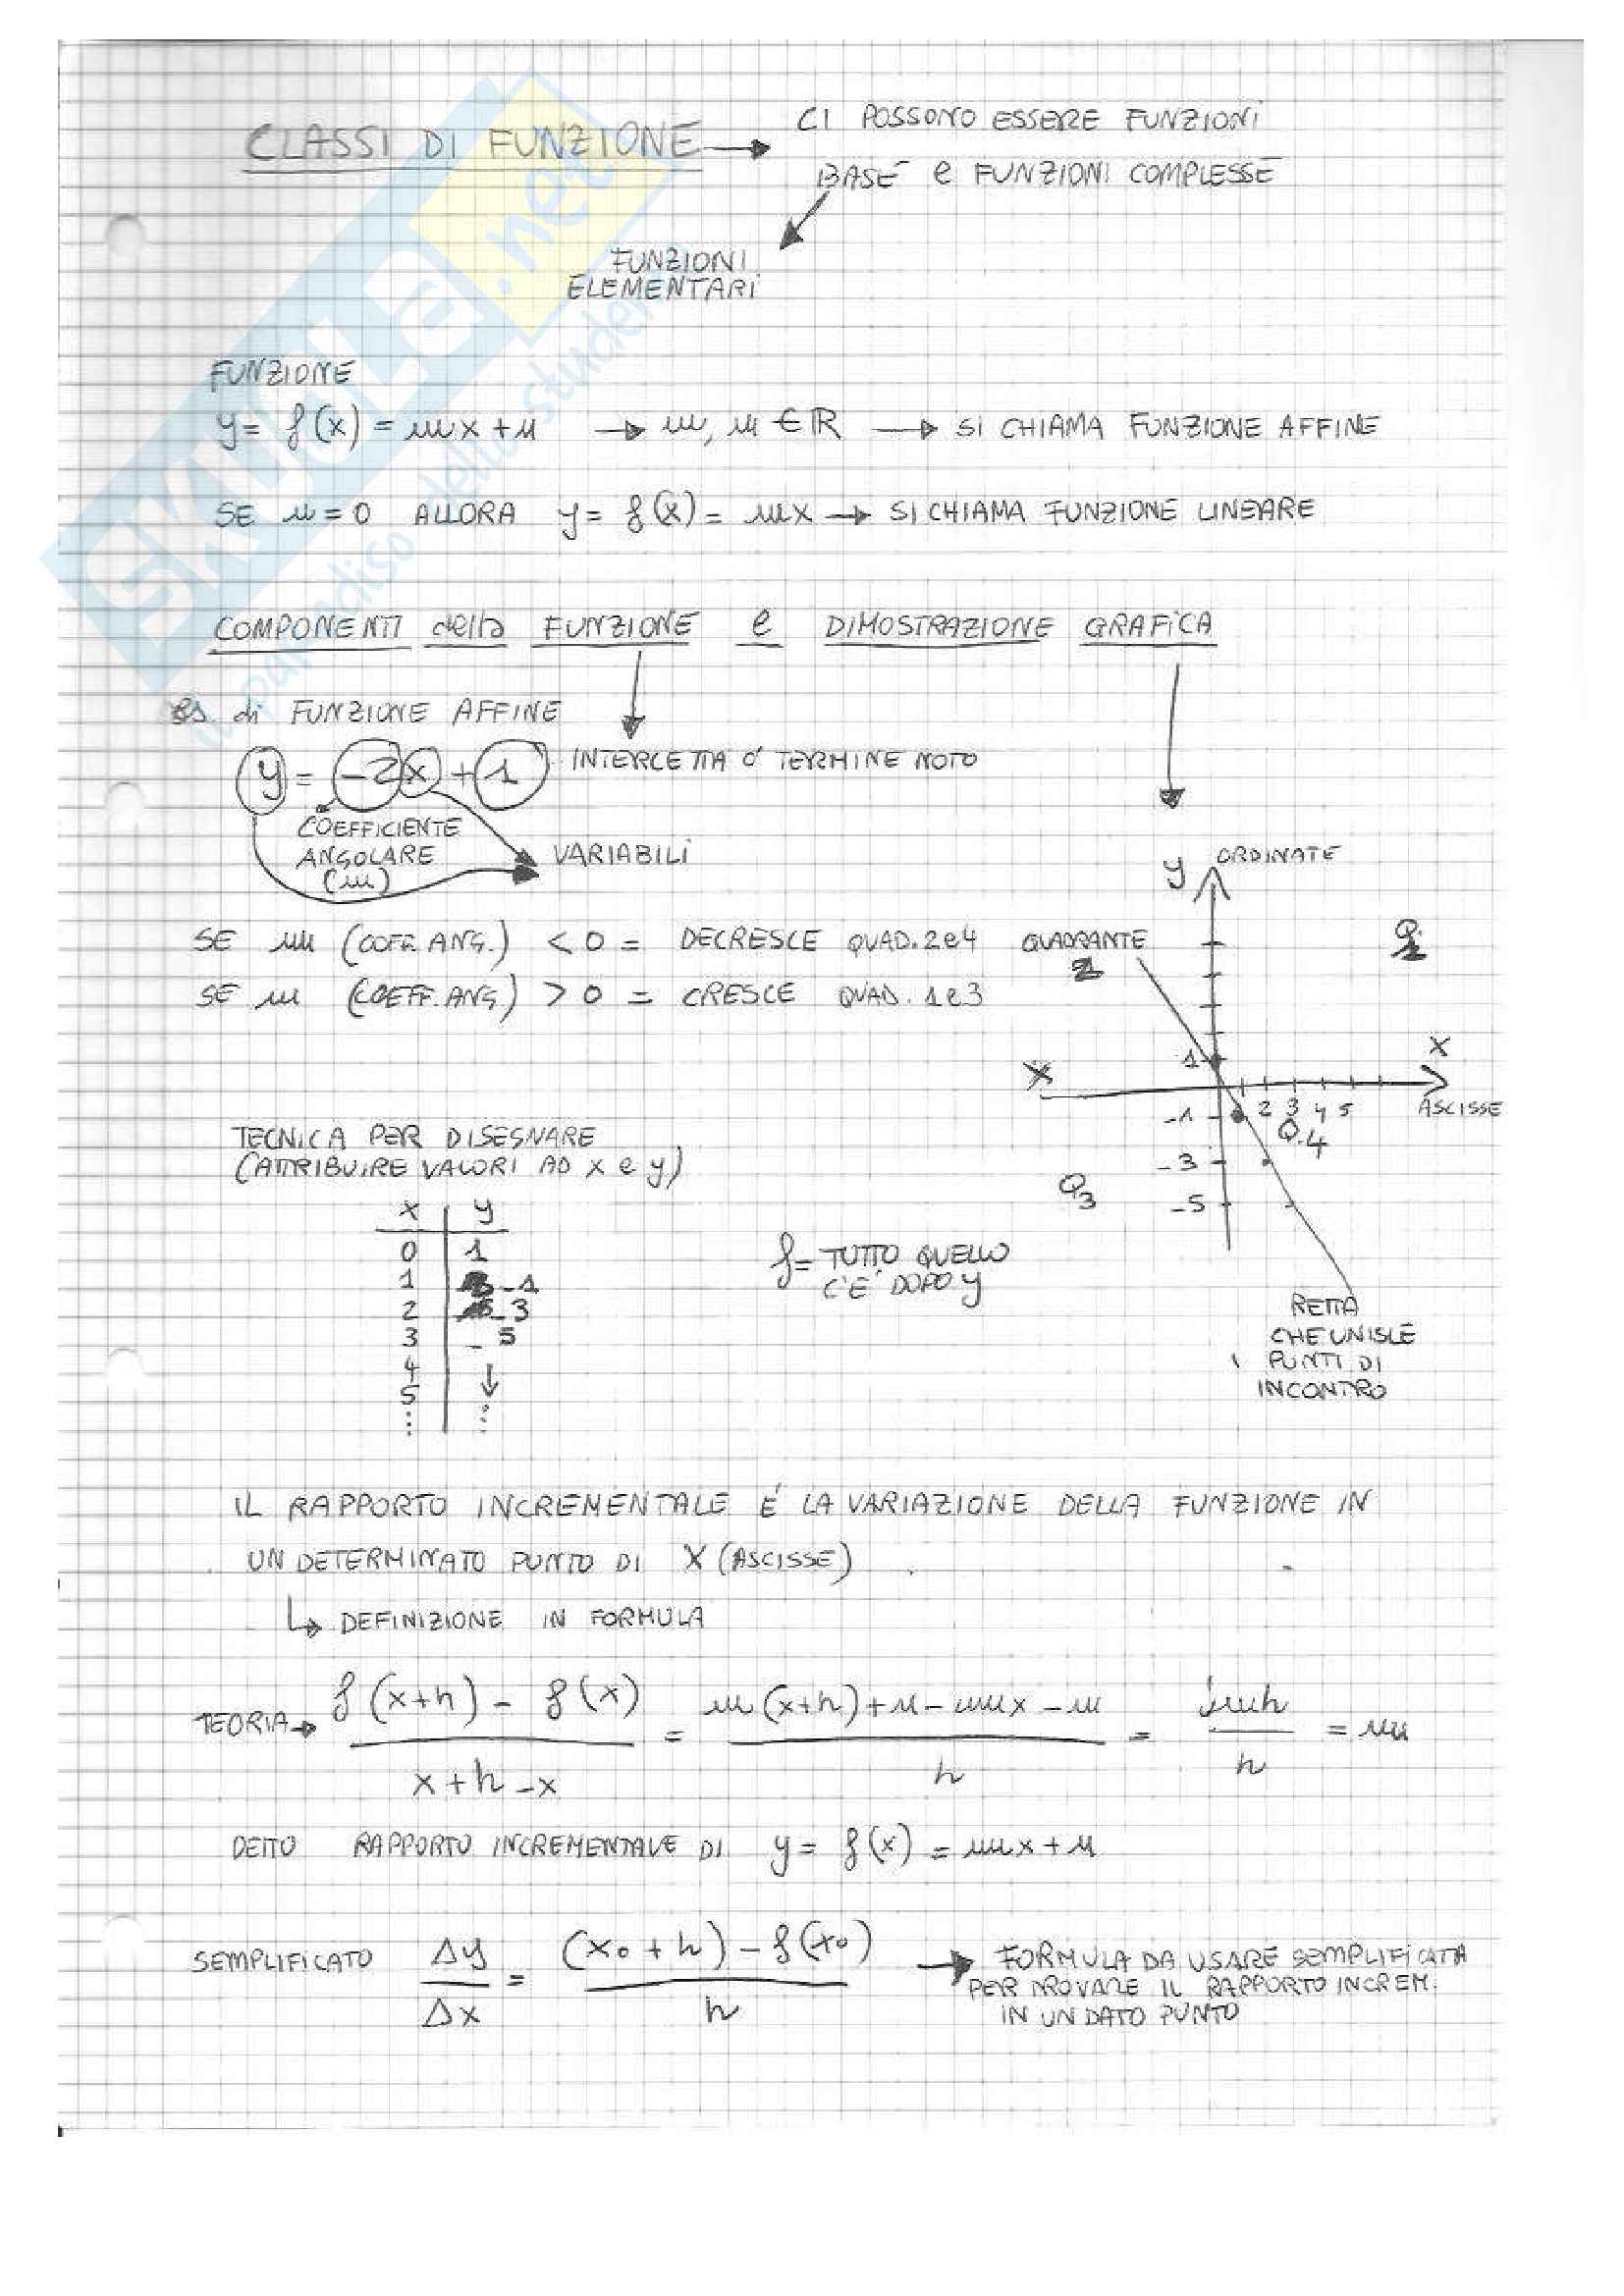 CLASSI DI FUNZIONE → CI POSSONO ESSERE FUNZIONI
BASE e FUNZIONI COMPLESSE
FUNZIONI
ELEMENTARI
SKUOLA.net
il paradiso dello studente
FUNZIONE
y = f(x) = mx + n → m, n ∈ ℝ → SI CHIAMA FUNZIONE AFFINE
SE n = 0 ALLORA y = f(x) = mx → SI CHIAMA FUNZIONE LINEARE
COMPONENTI della FUNZIONE e DIMOSTRAZIONE GRAFICA
es. di FUNZIONE AFFINE
y = -2x + 1 INTERCETTA O TERMINE NOTO
COEFFICIENTE
ANGOLARE
(m)
VARIABILI
SE m (COFF. ANG.) < 0 = DECRESCE QUAD. 2 e 4
SE m (COEFF. ANG) > 0 = CRESCE QUAD. 1 e 3
y ORDINATE
QUADRANTE
2
Q.
1
1
X
X
-1 2 3 4 5 ASCISSE
Q.4
-3
Q3
-5
RETTA
CHE UNISCE
PUNTI DI
INCONTRO
TECNICA PER DISEGNARE
(ATTRIBUIRE VALORI AD x e y)
x y
0 1
1 -1
2 -3
3 -5
4 ↓
5
⋮ ⋮
f = TUTTO QUELLO
C'E' DOPO y
IL RAPPORTO INCREMENTALE E' LA VARIAZIONE DELLA FUNZIONE IN
UN DETERMINATO PUNTO DI X (ASCISSE)
↳ DEFINIZIONE IN FORMULA
TEORIA → f(x+h) - f(x) / x+h-x = m(x+h)+n-mx-n / h = mh / h = m
DETTO RAPPORTO INCREMENTALE DI y = f(x) = mx + n
SEMPLIFICATO Δy / Δx = (x0 + h) - f(x0) / h → FORMULA DA USARE SEMPLIFICATA
PER TROVARE IL RAPPORTO INCREM.
IN UN DATO PUNTO